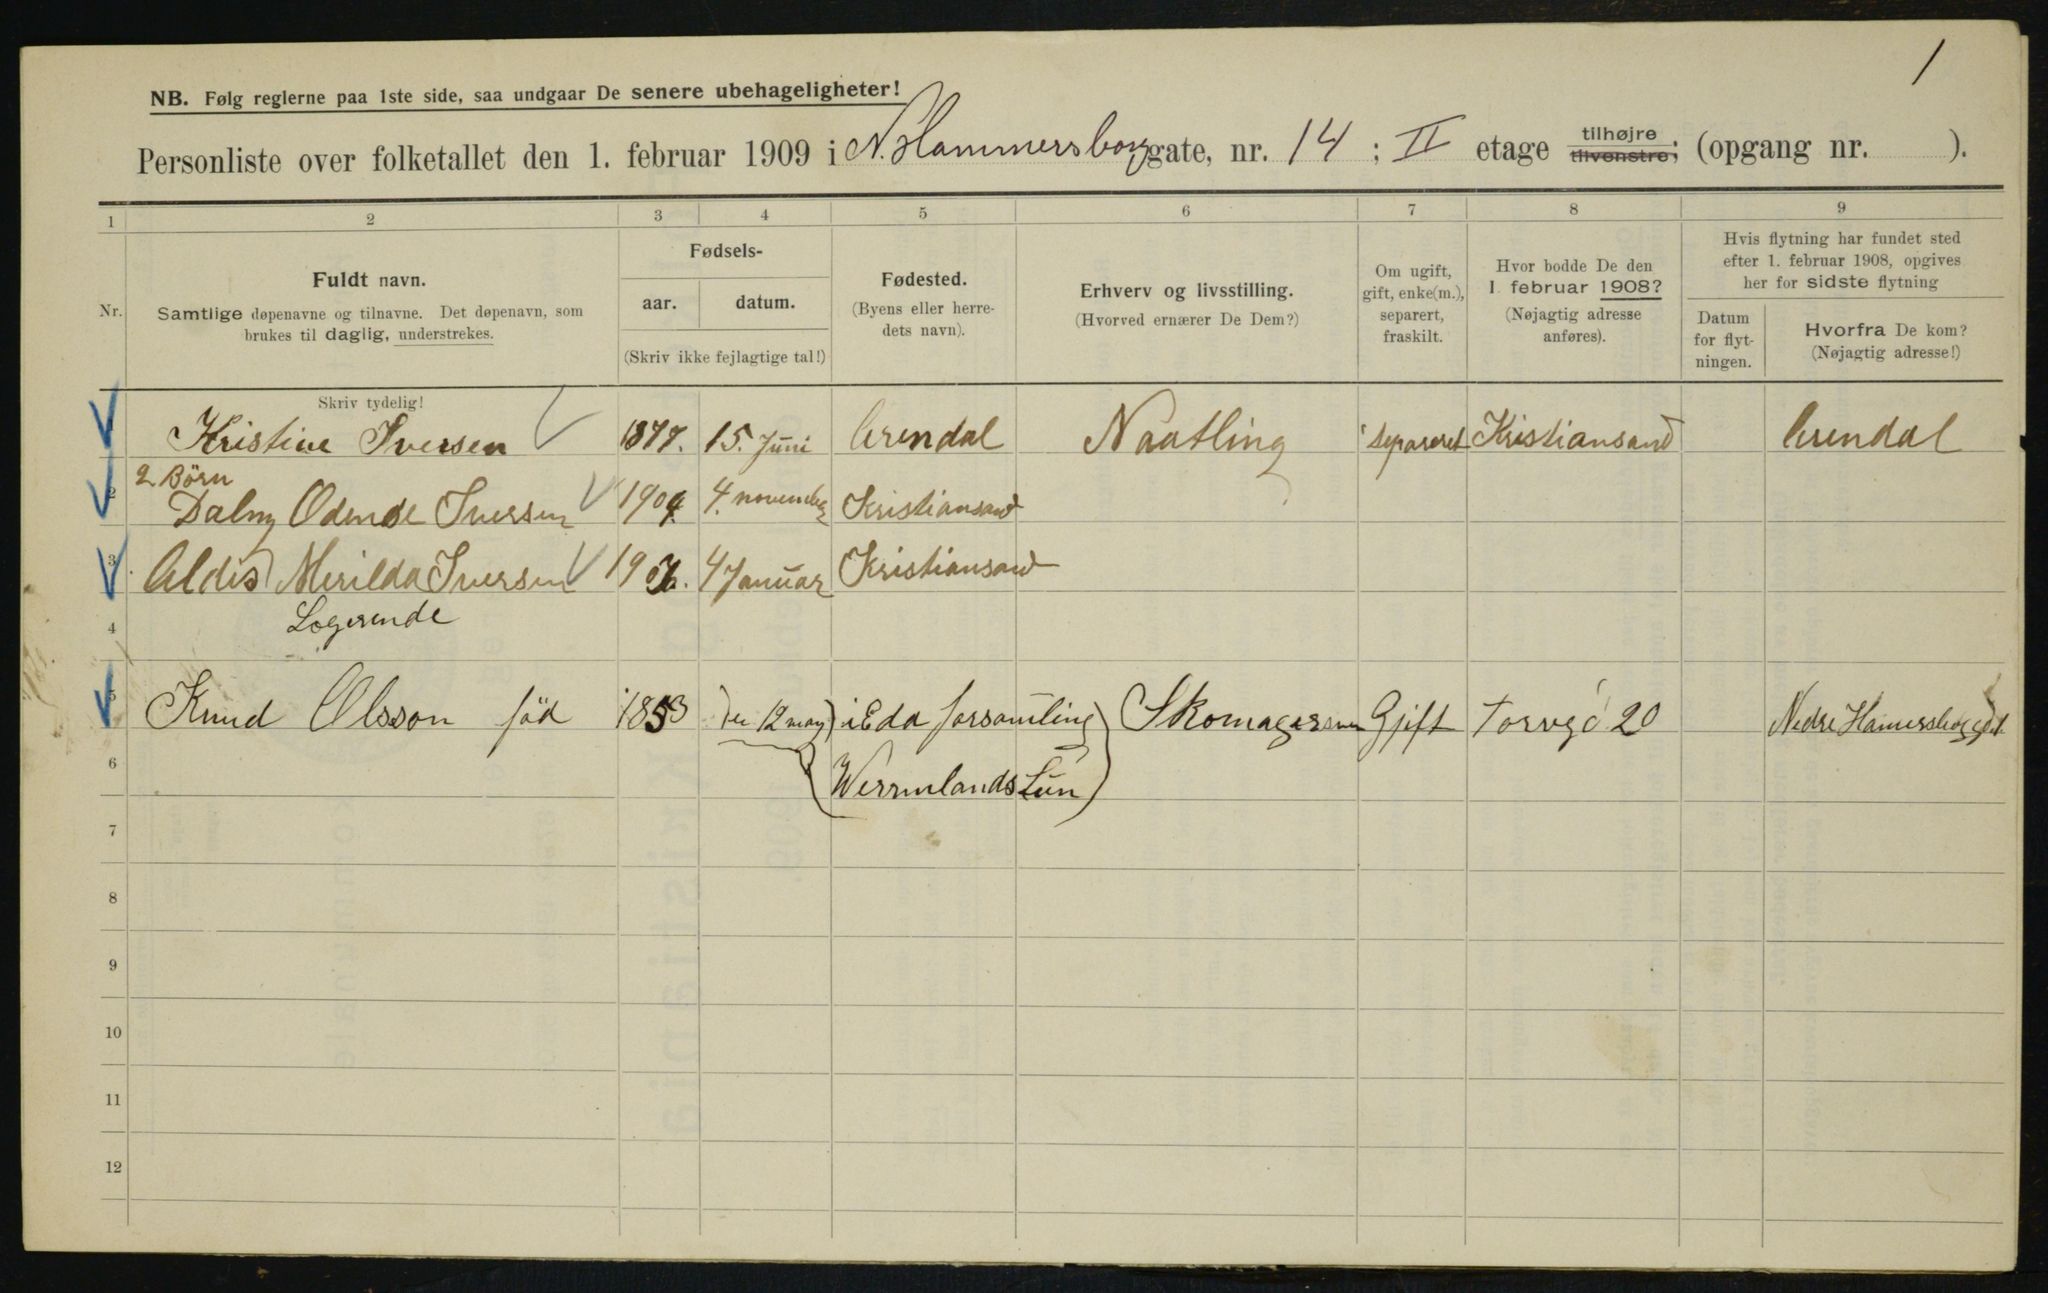 1
NB. Følg reglerne paa 1ste side, saa undgaar De senere ubehageligheter!
Personliste over folketallet den 1. februar 1909 i N. Hammersborg gate, nr. 14 ; II etage tilhøjre tilvenstre; (opgang nr. ).
1 2 3 4 5 6 7 8 9
Nr.
Fuldt navn.
Samtlige døpenavne og tilnavne. Det døpenavn, som
brukes til daglig, understrekes.
Fødsels-
aar. datum.
(Skriv ikke fejlagtige tal!)
Fødested.
(Byens eller herre-
dets navn).
Erhverv og livsstilling.
(Hvorved ernærer De Dem?)
Om ugift,
gift, enke(m.),
separert,
fraskilt.
Hvor bodde De den
1 februar 1908?
(Nøjagtig adresse
anføres).
Hvis flytning har fundet sted
efter 1. februar 1908, opgives
her for sidste flytning
Datum
for flyt-
ningen.
Hvorfra De kom?
(Nøjagtig adresse!)
Skriv tydelig!
Kristine Iversen 1877. 15. Juni Arendal Naatling separeret Kristiansand Arendal
2 Börn
2 Dalny Odende Iversen 1904. 4. november Kristiansand
3 Aldis Merilda Iversen 4 Januar Kristiansand
4 Logerende
5 Knud Olsson föd 1853 12 may i Eda forsamling Skomagersven Gjift Torvgt 20 Nedre Hamersborggt
6 (Wermlands Län)
7
8
9
10
11
12